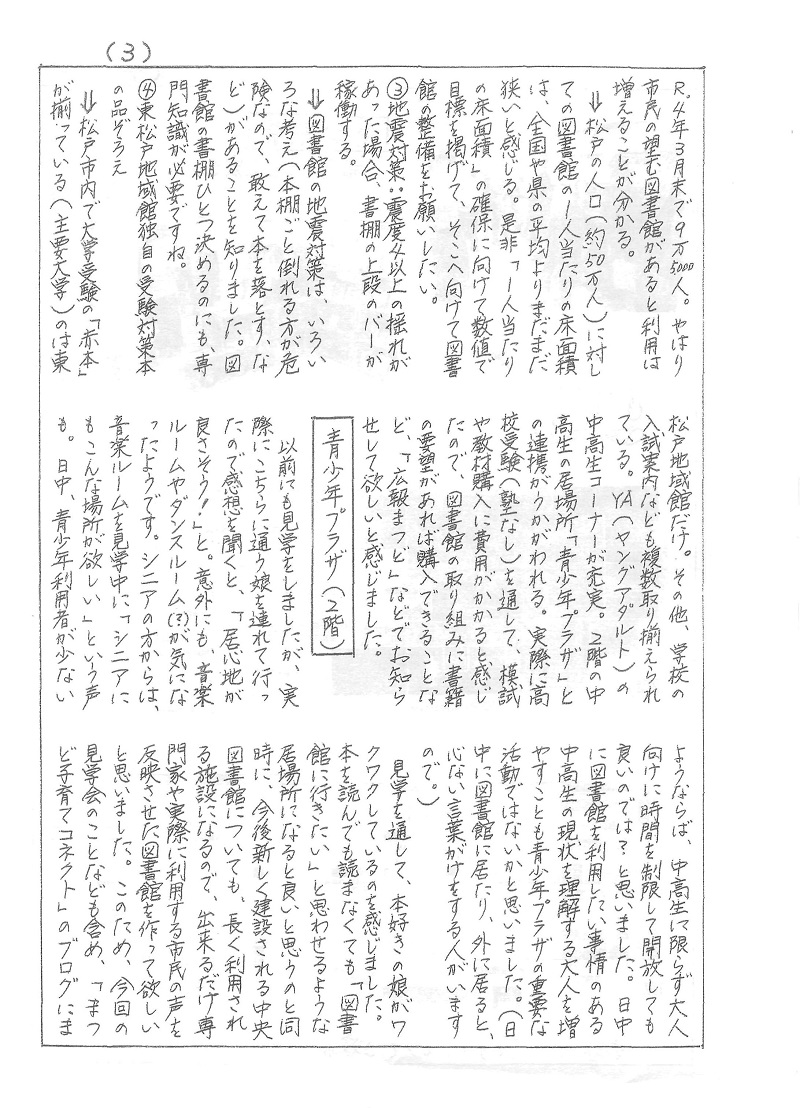 (3)
R.4年3月末で9万5000人。やはり
市民の望む図書館があると利用は
増えることが分かる。
⇓松戸の人口(約50万人)に対し
ての図書館の1人当たりの床面積
は、全国や県の平均よりまだまだ
狭いと感じる。是非「1人当たり
の床面積」の確保に向けて数値で
目標を掲げて、そこへ向けて図書
館の整備をお願いしたい。
③地震対策:震度4以上の揺れが
あった場合、書棚の上段のバーが
稼働する。
⇓図書館の地震対策は、いろい
ろな考え(本棚ごと倒れる方が危
険なので、敢えて本を落とす、な
ど)があることを知りました。図
書館の書棚ひとつ決めるのにも、専
門知識が必要ですね。
④東松戸地域館独自の受験対策本
の品ぞろえ
⇓松戸市内で大学受験の「赤本」
が揃っている(主要大学)のは東
松戸地域館だけ。その他、学校の
入試案内なども複数取り揃えられ
ている。YA(ヤングアダルト)の
中高生コーナーが充実。2階の中
高生の居場所「青少年プラザ」と
の連携がうかがわれる。実際に高
校受験(塾なし)を通して、模試
や教材購入に費用がかかると感じ
たので、図書館の取り組みに書籍
の要望があれば購入できることな
ど、「広報まつど」などでお知ら
せして欲しいと感じました。
青少年プラザ(2階)
以前にも見学をしましたが、実
際にこちらに通う娘を連れて行っ
たので感想を聞くと、「居心地が
良さそう!」と。意外にも、音楽
ルームやダンスルーム(?)が気にな
ったようです。シニアの方からは、
音楽ルームを見学中に「シニアに
もこんな場所が欲しい」という声
も。日中、青少年利用者が少ない
ようならば、中高生に限らず大人
向けに時間を制限して開放しても
良いのでは?と思いました。日中
に図書館を利用したい事情のある
中高生の現状を理解する大人を増
やすことも青少年プラザの重要な
活動ではないかと思いました。(日
中に図書館に居たり、外に居ると、
心ない言葉がけをする人がいます
ので。)
見学を通して、本好きの娘がワ
クワクしているのを感じました。
本を読んでも読まなくても「図書
館に行きたい」と思わせるような
居場所になると良いと思うのと同
時に、今後新しく建設される中央
図書館についても、長く利用され
る施設になるので、出来るだけ専
門家や実際に利用する市民の声を
反映させた図書館を作って欲しい
と思いました。このため、今回の
見学会のことなども含め、「まつ
ど子育てコネクト」のブログにま